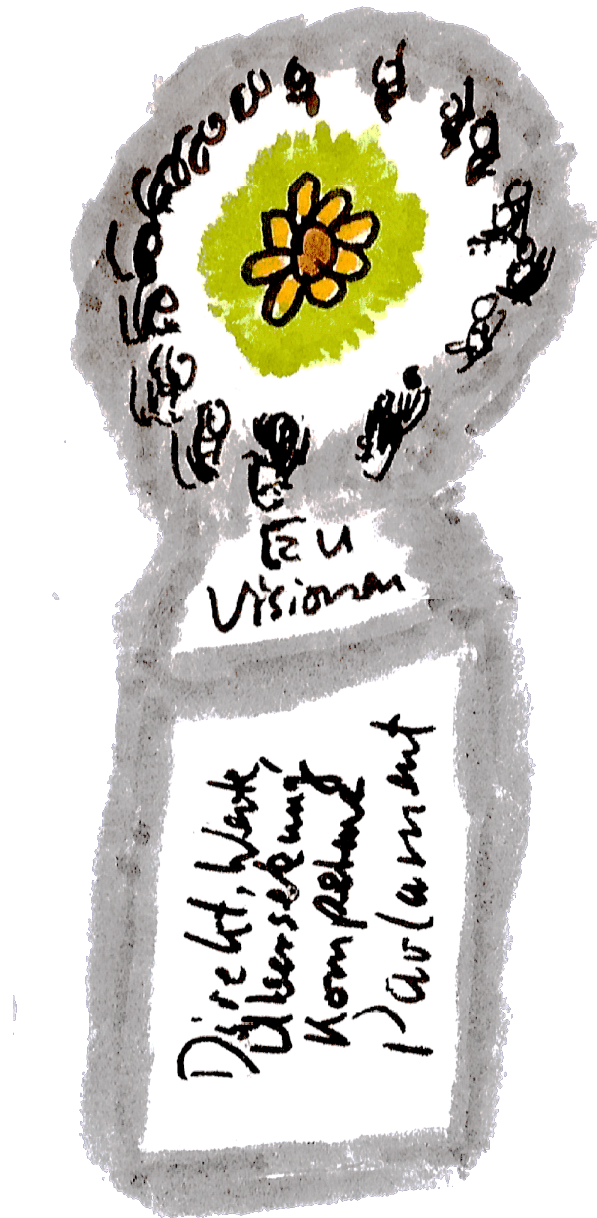 EU
Visionen
Direkt, Werte,
Übersetzung
Kompetenz
Parlament